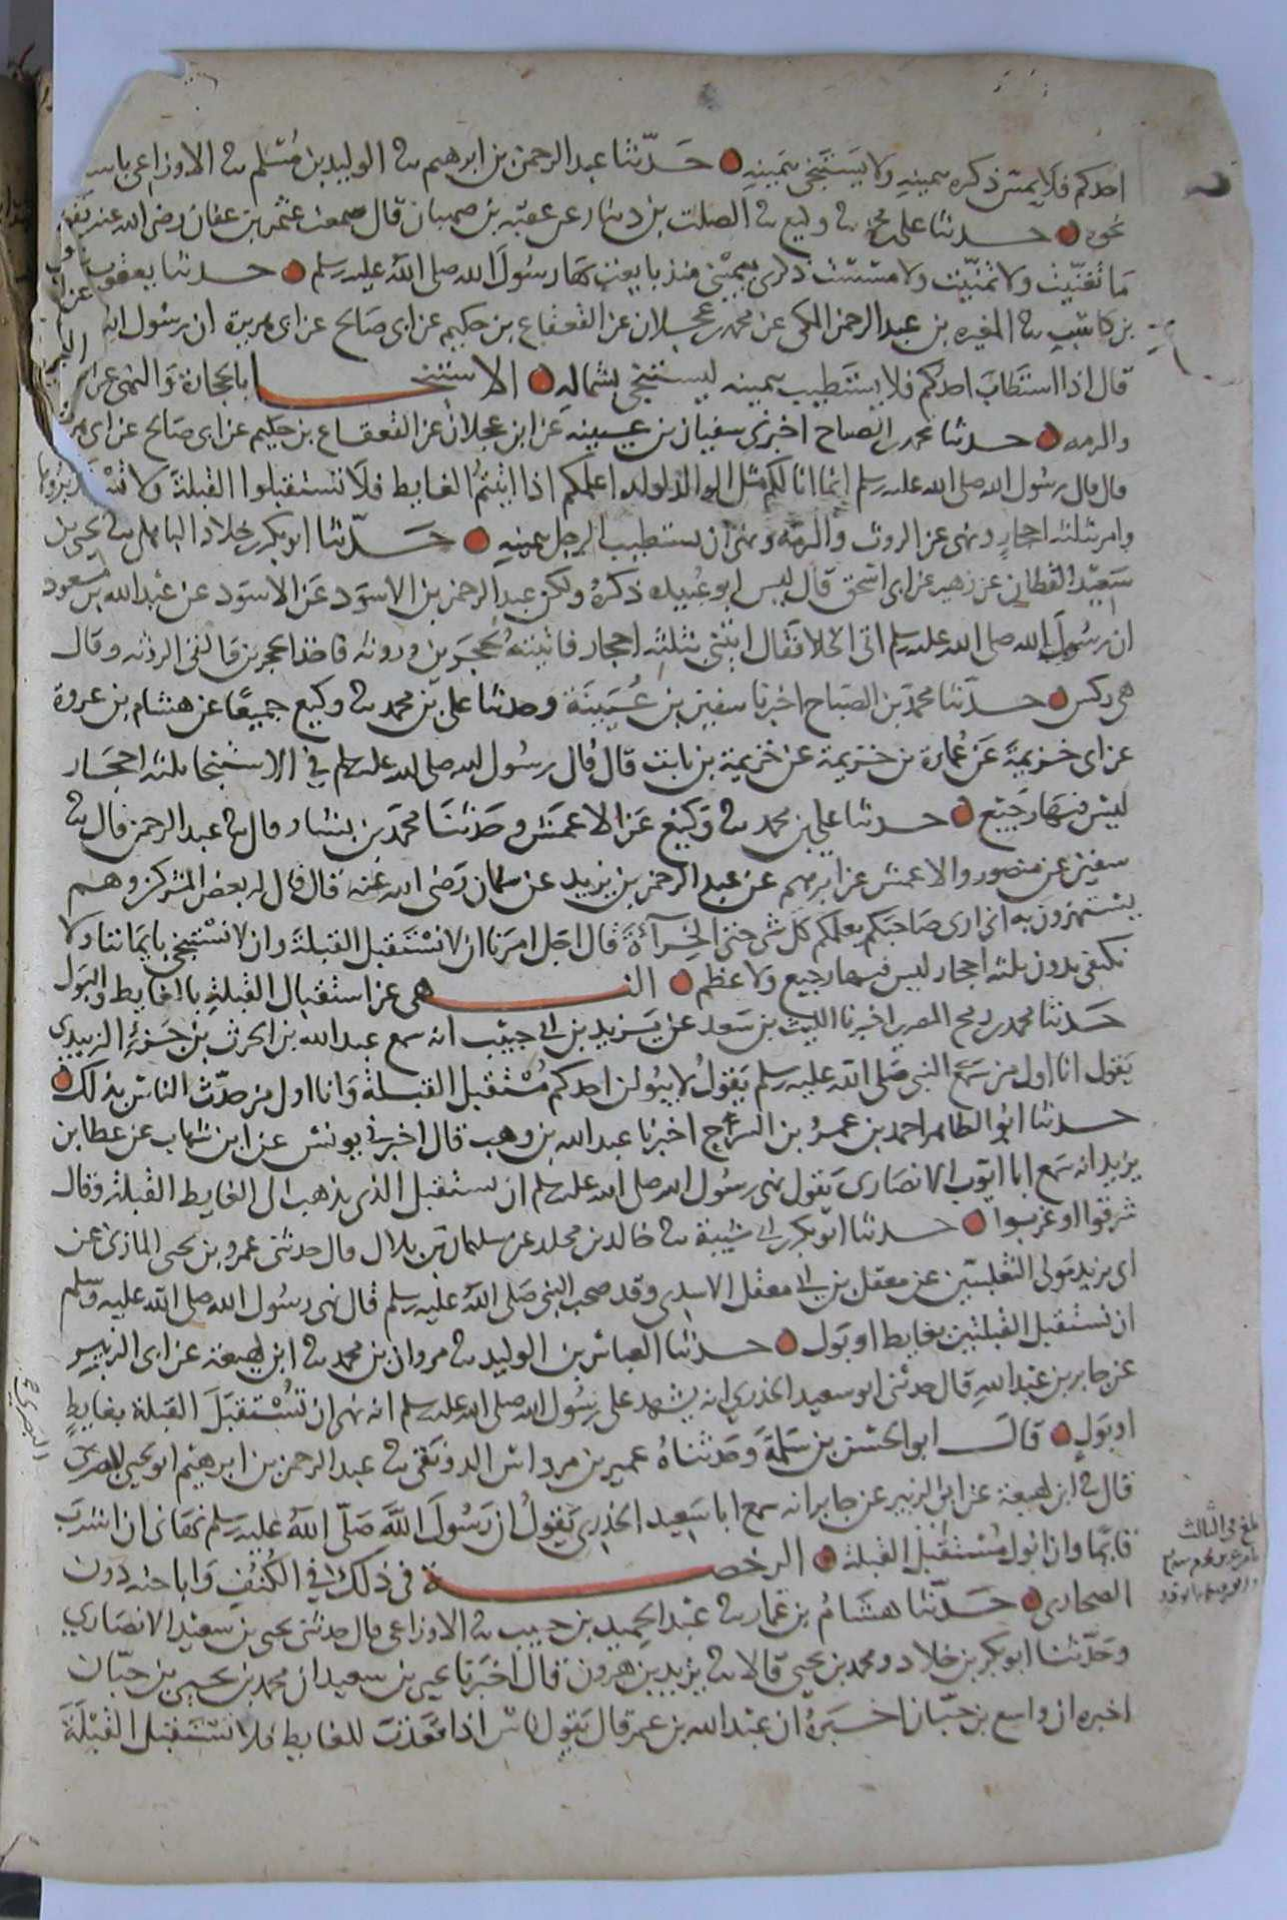 احدكم فلا يمس ذكره بيمينه ولا يستنجى بيمينه حدّثنا عبد الرحمن بن ابرهيم ثا الوليد بن مسلم ثا الاوزاعى باسـ
نحوه حدثنا على بن محمد ثا وكيع ثا الصلت بن دينار عن عقبة بن صهبان قال سمعت عثمن بن عفان رضى الله عنه يقو
ما تغنّيت ولا تمنّيت ولا مسست ذكرى بيمينى منذ بايعت بها رسول الله صلى الله عليه وسلم حدثنا يعقوب
بن كاسب ثا المغيره بن عبد الرحمن المكى عن محمد بن عجلان عن القعقاع بن حكيم عن ابى صالح عن ابى هريرة ان رسول الله
قال اذا استطاب احدكم فلا يستطيب بيمينه ليستنجى بشماله الاستنجا بالحجارة والنهى عن الر
والرمه حدثنا محمد بن الصباح اخبرنى سفيان بن عيينه عن ابن عجلان عن القعقاع بن حكيم عن ابى صالح عن ابى هر
قال قال رسول الله صلى الله عليه وسلم انما انا لكم مثل الوالد لولده اعلمكم اذا اتيتم الغايط فلا تستقبلوا القبلة ولا تستدبروها
وامر بثلثه احجار ونهى عن الروث والرمّه ونهى ان يستطيب الرجل بيمينه حدّثنا ابو بكر بن خلاد الباهلى ثا يحيى بن
سعيد القطان عن زهير عن ابى اسحق قال ليس ابو عبيده ذكره ولكن عبد الرحمن بن الاسود عن الاسود عن عبد الله بن مسعود
ان رسول الله صلى الله عليه وسلم اتى الخلا فقال ايتنى بثلثه احجار فاتيته بحجرين وروثه فاخذ الحجرين فالقى الروثه وقال
هى ركس حدّثنا محمد بن الصباح اخبرنا سفين بن عُيينة وحدثنا على بن محمد ثا وكيع جميعًا عن هشام بن عروة
عن ابى خزيمة عن عُمارة بن خزيمة عن خزيمة بن ثابت قال قال رسول الله صلى الله عليه وسلم فى الاستنجا ثلثه احجار
ليس فيها رجيع حدثنا على بن محمد ثا وكيع عن الاعمش وحدثنا محمد بن بشار قال ثا عبد الرحمن قال ثا
سفين عن منصور والاعمش عن ابرهيم عن عبد الرحمن بن يزيد عن سلمان رضى الله عنه قال قال له بعض المشركين وهم
يستهزون به انى ارى صاحبكم يعلمكم كل شى حتى الخرآءَة قال اجل امرنا ان لا نستقبل القبلة وان لا نستنجى بايماننا ولا
نكتفى بدون ثلثه احجار ليس فيها رجيع ولا عظم النهى عن استقبال القبلة بالغايط والبول
حدثنا محمد بن رمح المصرى اخبرنا الليث بن سعد عن يزيد بن ابى حبيب انه سمع عبد الله بن الحرث بن جزء الزبيدى
يقول انا اول من سمع النبى صلى الله عليه وسلم يقول لا يبولن احدكم مستقبل القبلة وانا اول من حدّث الناس بذلك
حدثنا ابو الطاهر احمد بن عمرو بن السرح اخبرنا عبد الله بن وهب قال اخبرنى يونس عن ابن شهاب عن عطا بن
يزيد انه سمع ابا ايوب الانصارى يقول نهى رسول الله صلى الله عليه وسلم ان يستقبل الذى يذهب الى الغايط القبلة وقال
شرقوا او غربوا حدثنا ابو بكر بن ابى شيبة ثا خالد بن مخلد عن سليمان بن بلال قال حدثنى عمرو بن يحيى المازنى عن
ابى يزيد مولى الثعلبيين عن معقل بن ابى معقل الاسدى وقد صحب النبى صلى الله عليه وسلم قال نهى رسول الله صلى الله عليه وسلم
ان نستقبل القبلتين بغايط او بول حدثنا العباس بن الوليد ثا مروان بن محمد ثا ابن لهيعة عن ابى الزبير
عن جابر بن عبد الله قال حدثنى ابو سعيد الخدرى انه يشهد على رسول الله صلى الله عليه وسلم انه نهى ان تُستقبل القبلة بغايط
او بول قال ابو الحسن بن سلمة وحدثناه عمير بن مرداس الدونقى ثا عبد الرحمن بن ابرهيم ابو يحيى
قال ثا ابن لهيعة عن ابى الزبير عن جابر انه سمع ابا سعيد الخدرى يقول ان رسول الله صلى الله عليه وسلم نهانى ان اشرب
قايمًا وان ابول مستقبل القبلة الرخصة فى ذلك فى الكنف واباحته دون
الصحارى حدّثنا هشام بن عمار ثا عبد الحميد بن حبيب ثا الاوزاعى قال حدثنى يحيى بن سعيد الانصارى
وحدّثنا ابو بكر بن خلاد ومحمد بن يحيى قالا ثا يزيد بن هرون قال اخبرنا يحيى بن سعيد ان محمد بن يحيى بن حبّان
اخبره ان واسع بن حبّان اخبره ان عبد الله بن عمر قال يقول ناس اذا قعدت للغايط فلا تستقبل القبلة
البصرى
بلغ فى الثالث